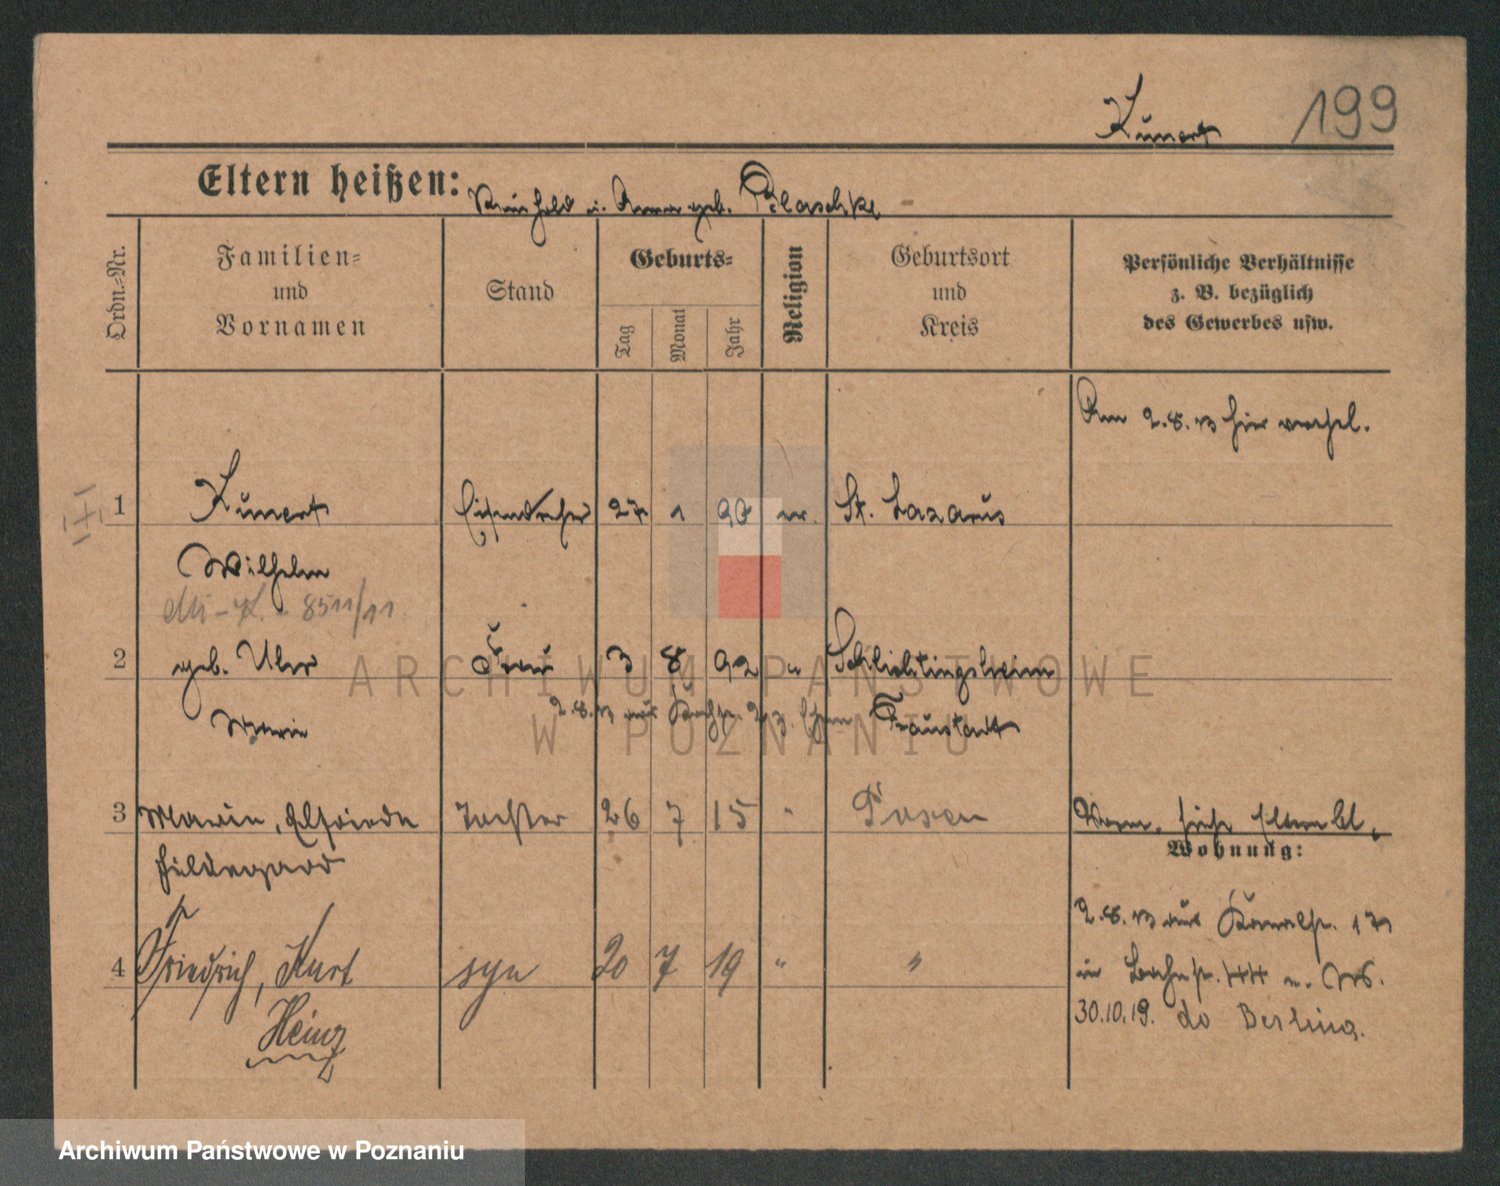 Kunert 199
Eltern heißen: Reinhold u. Anna geb. Plaschke
Ordn.-Nr.
Familien-
und
Vornamen
Stand
Geburts-
Tag
Monat
Jahr
Religion
Geburtsort
und
Kreis
Persönliche Verhältnisse
z. B. bezüglich
des Gewerbes usw.
Am 2.8.13 hier verehel.
1 Kunert Eisendreher 27 1 90 ev. St. Lazarus
Wilhelm
8511/11
2 geb. Frau 3 8 92 " Schlichtingsheim
Marie 2.8.13 aus Fraustadt
3 Maria, Elfriede Tochter 26 7 15 " Posen
Hildegard
Wohnung:
2.8.13 aus 17
4 Friedrich, Kurt syn 20 7 19 " "
Heinz
30.10.19. do Berlina.
ARCHIWUM PAŃSTWOWE
W POZNANIU
Archiwum Państwowe w Poznaniu